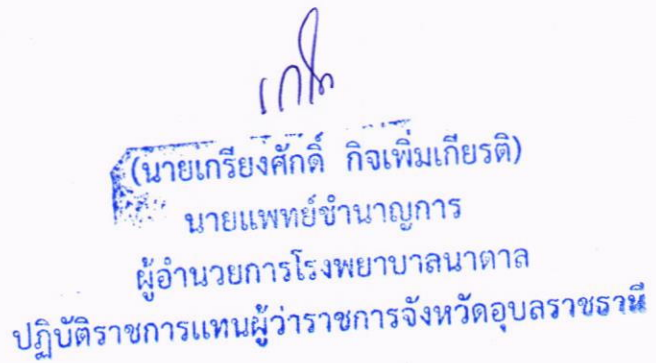 (นายเกรียงศักดิ์ กิจเพิ่มเกียรติ)
นายแพทย์ชำนาญการ
ผู้อำนวยการโรงพยาบาลนาตาล
ปฏิบัติราชการแทนผู้ว่าราชการจังหวัดอุบลราชธานี